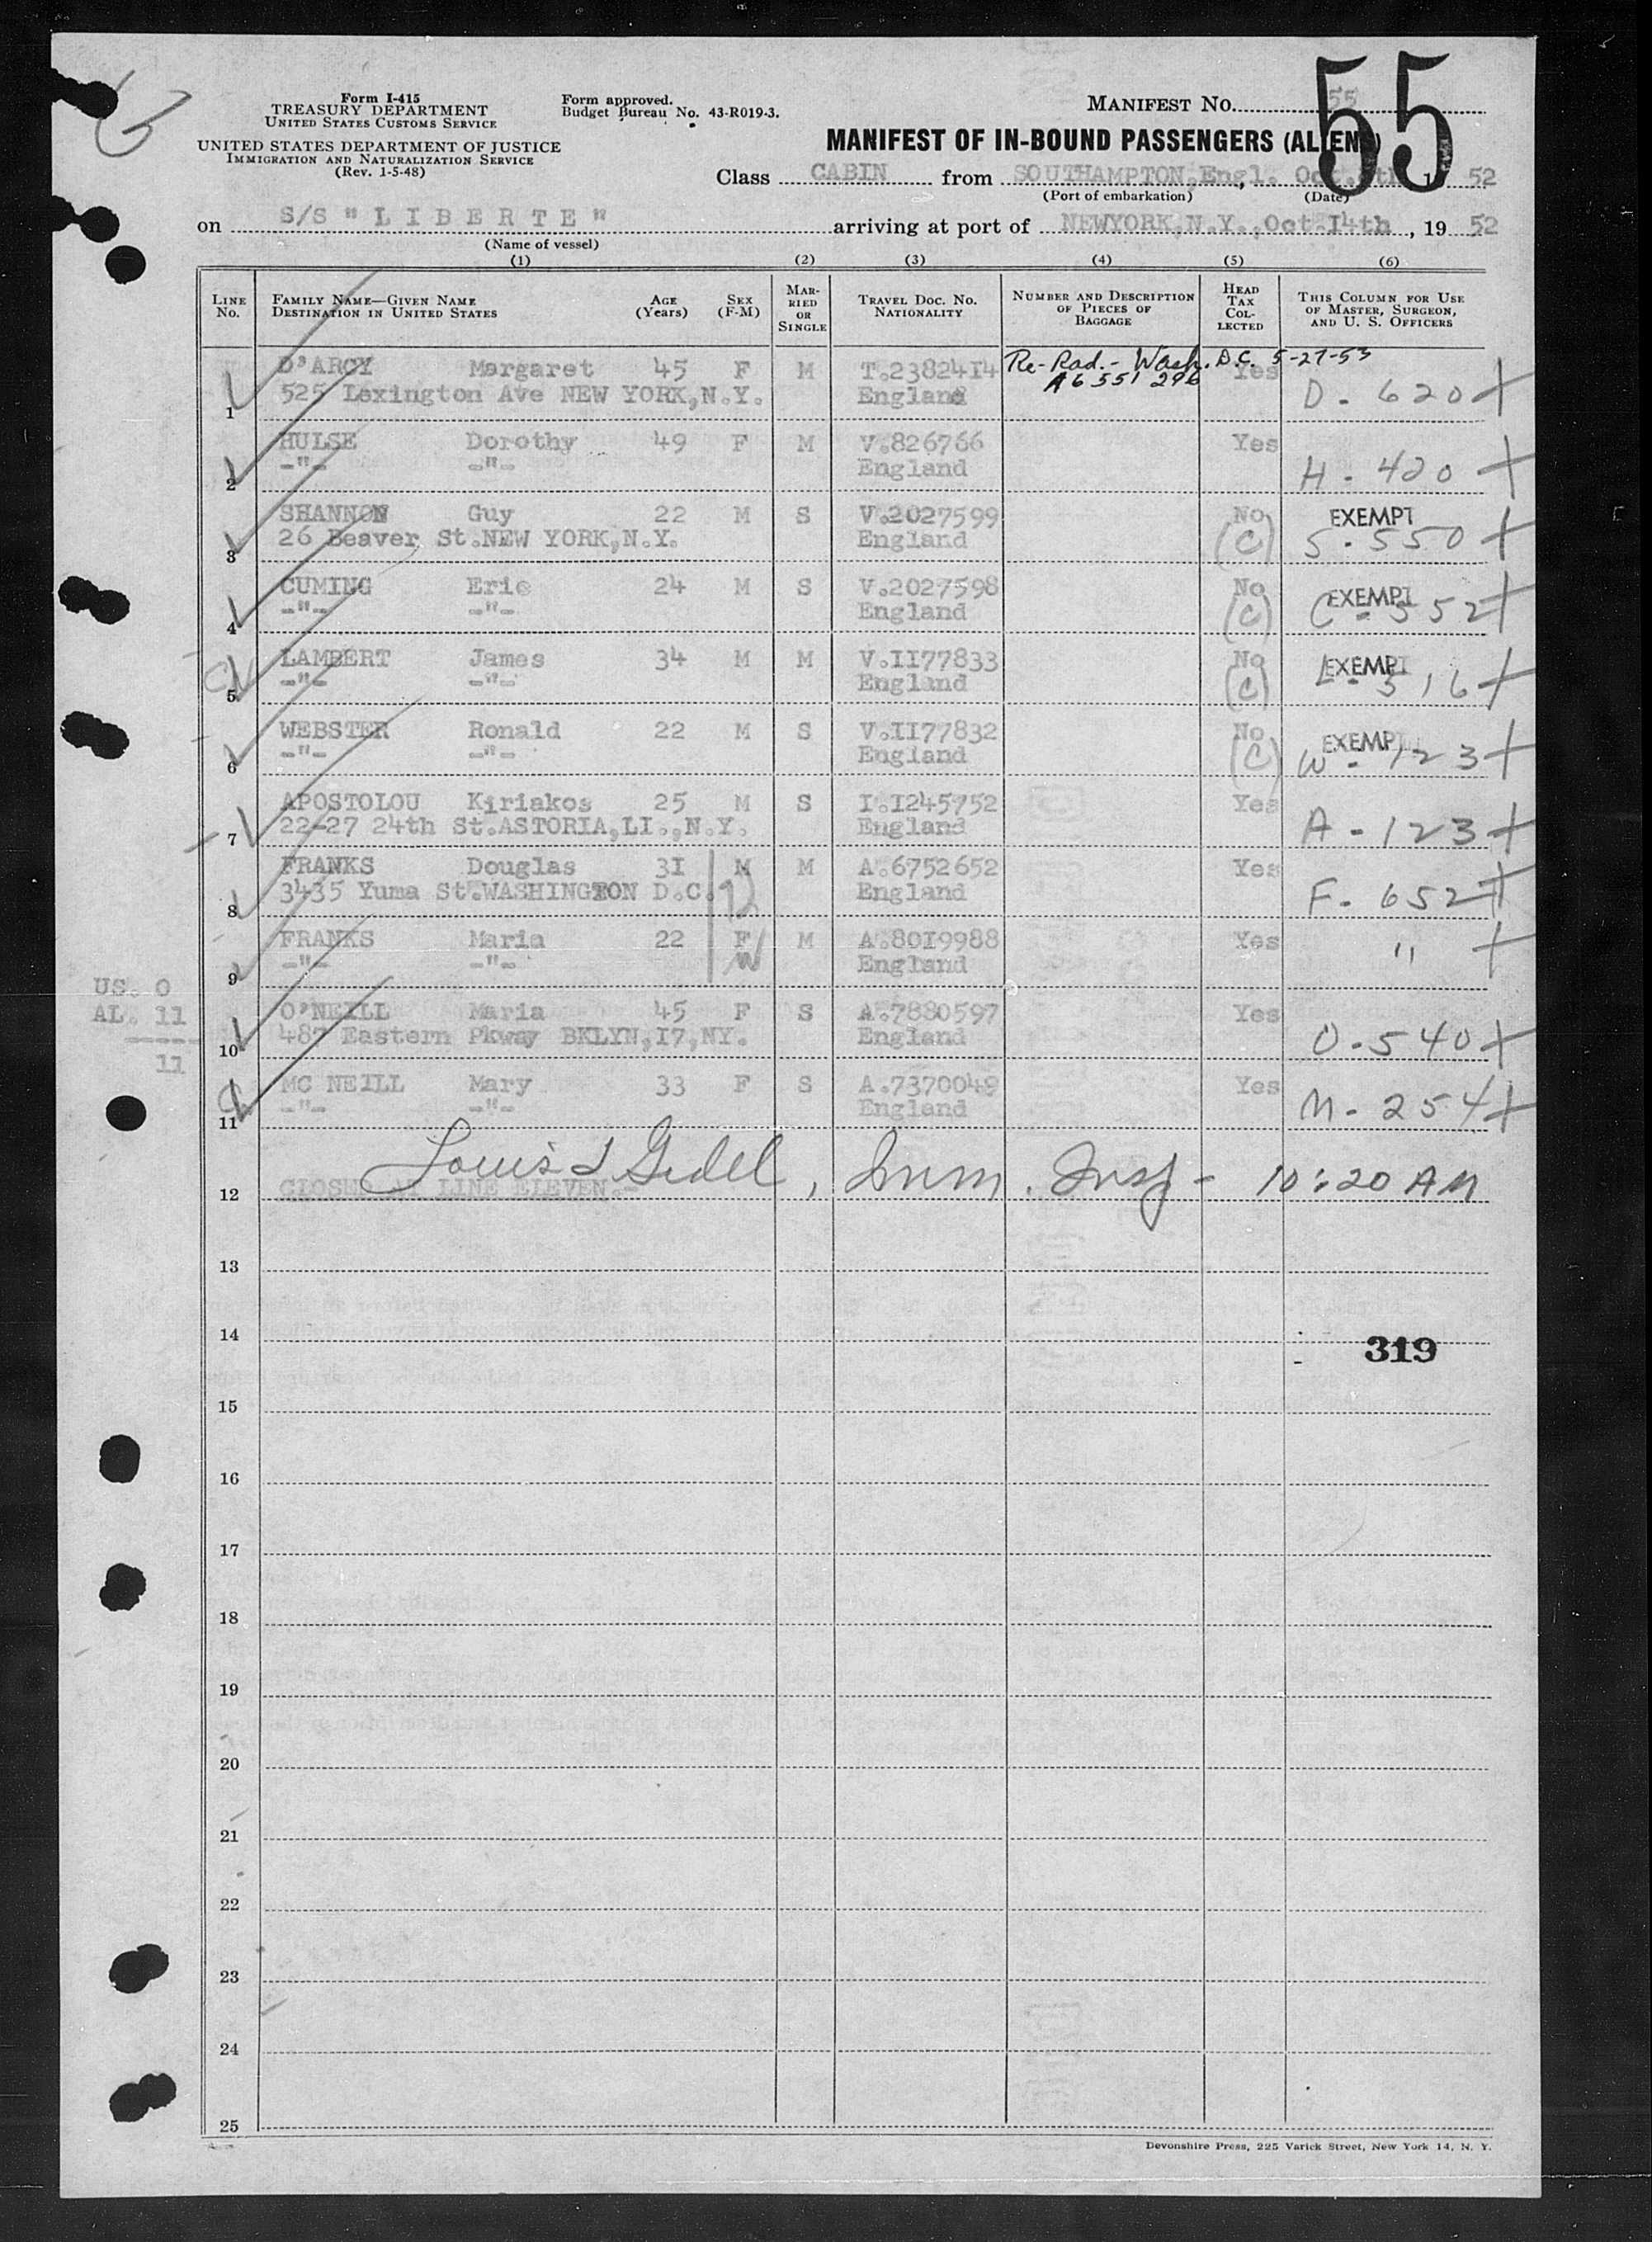 Form I-415
TREASURY DEPARTMENT
UNITED STATES CUSTOMS SERVICE
UNITED STATES DEPARTMENT OF JUSTICE
IMMIGRATION AND NATURALIZATION SERVICE
(Rev. 1-5-48)
Form approved.
Budget Bureau No. 43-R019-3.
MANIFEST NO. 55
55
MANIFEST OF IN-BOUND PASSENGERS (ALIEN)
Class CABIN from SOUTHAMPTON, Engl. Oct. 52
(Port of embarkation) (Date)
on S/S "LIBERTE" arriving at port of NEWYORK, N.Y., Oct I4th, 19 52
(Name of vessel)
(1) (2) (3) (4) (5) (6)
LINE NO. FAMILY NAME—GIVEN NAME DESTINATION IN UNITED STATES AGE (YEARS) SEX (F-M) MARRIED OR SINGLE TRAVEL DOC. NO. NATIONALITY NUMBER AND DESCRIPTION OF PIECES OF BAGGAGE HEAD TAX COLLECTED THIS COLUMN FOR USE OF MASTER, SURGEON, AND U. S. OFFICERS
D'ARCY Margaret 45 F M T.2382414 Re-Rad.- Wash. D.C. 5-27-53 Yes
A6 551 296
1 525 Lexington Ave NEW YORK, N.Y. England D - 620 +
HULSE Dorothy 49 F M V.826766 Yes
2 -"- -"- England H - 420 +
SHANNON Guy 22 M S V.2027599 No EXEMPT
3 26 Beaver St.NEW YORK, N.Y. England (C) S - 550 +
CUMING Eric 24 M S V.2027598 No EXEMPT
4 -"- -"- England (C) C - 552 +
LAMBERT James 34 M M V.II77833 No EXEMPT
5 -"- -"- England (C) L - 516 +
WEBSTER Ronald 22 M S V.II77832 No EXEMPT
6 -"- -"- England (C) W - 123 +
APOSTOLOU Kiriakos 25 M S I.I245752 Yes
7 22-27 24th St.ASTORIA, LI., N.Y. England A - 123 +
FRANKS Douglas 3I M M A.6752652 Yes
8 3435 Yuma St.WASHINGTON D.C. England F - 652 +
FRANKS Maria 22 F M A.80I9988 Yes " +
9 -"- -"- W England
US. 0
AL. 11
11
O'NEILL Maria 45 F S A.7880597 Yes
10 487 Eastern Pkway BKLYN, I7, NY. England O - 540 +
MC NEILL Mary 33 F S A.7370049 Yes
11 -"- -"- England M - 254 +
12 CLOSED AT LINE ELEVEN.-
Louis J Gedel, Imm. Insp - 10:20 AM
13
14
319
15
16
17
18
19
20
21
22
23
24
25
Devonshire Press, 225 Varick Street, New York 14, N. Y.